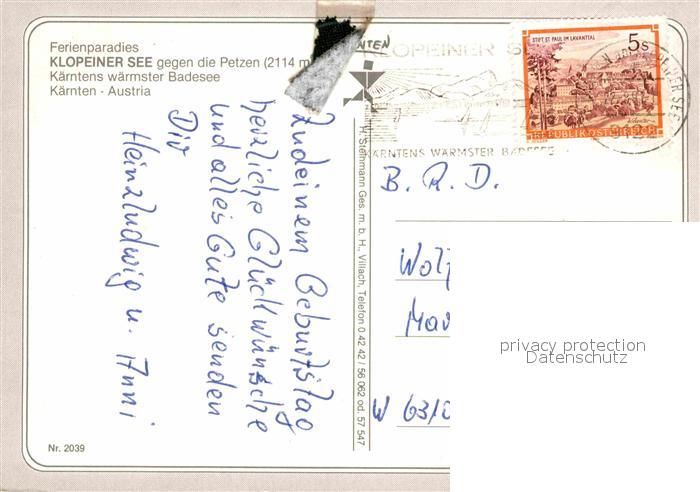 Ferienparadies
KLOPEINER SEE gegen die Petzen (2114 m
Kärntens wärmster Badesee
Kärnten - Austria
Zu deinem Geburtstag
herzliche Glückwünsche
und alles Gute senden
Dir
Heinzludwig u. Anni
Nr. 2039
H. Steinmann Ges. m. b. H., Villach, Telefon 0 42 42 / 56 0 62 od. 57 5 47
KLOPEINER S
KÄRNTENS WÄRMSTER BADESEE
STIFT ST. PAUL IM LAVANTTAL
5 S
REPUBLIK ÖSTERREICH
B. R. D.
Wolf
Mar
W 63/0
privacy protection
Datenschutz